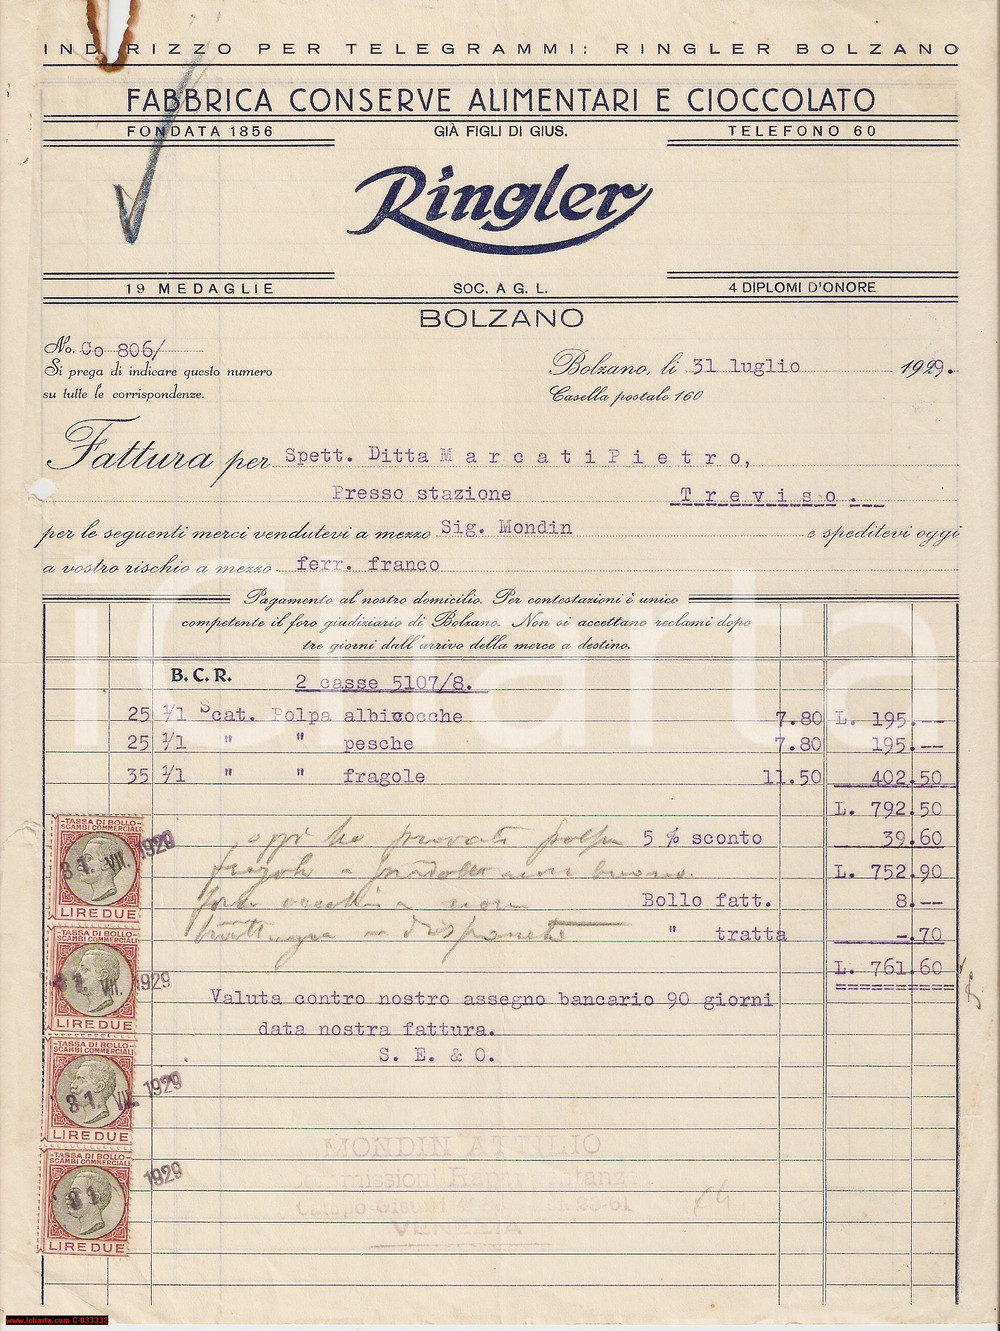 INDIRIZZO PER TELEGRAMMI: RINGLER BOLZANO
FABBRICA CONSERVE ALIMENTARI E CIOCCOLATO
FONDATA 1856 GIÀ FIGLI DI GIUS. TELEFONO 60
Ringler
19 MEDAGLIE SOC. A G. L. 4 DIPLOMI D'ONORE
BOLZANO
No. Co 806/
Si prega di indicare questo numero
su tutte le corrispondenze.
Bolzano, li 31 luglio 1929.
Casella postale 160
Fattura per Spett. Ditta Marcati Pietro,
Presso stazione Treviso.
per le seguenti merci vendutevi a mezzo Sig. Mondin e speditevi oggi
a vostro rischio a mezzo ferr. franco
Pagamento al nostro domicilio. Per contestazioni è unico
competente il foro giudiziario di Bolzano. Non si accettano reclami dopo
tre giorni dall'arrivo della merce a destino.
B. C. R. 2 casse 5107/8.
25 1/1 Scat. Polpa albicocche 7.80 L. 195.--
25 1/1 " " pesche 7.80 195.--
35 1/1 " " fragole 11.50 402.50
L. 792.50
5 % sconto 39.60
L. 752.90
Bollo fatt. 8.--
" tratta -.70
L. 761.60
oggi ho provato polpa
Valuta contro nostro assegno bancario 90 giorni
data nostra fattura.
S. E. & O.
TASSA DI BOLLO
SCAMBI COMMERCIALI
31. VII. 1929
LIRE DUE
TASSA DI BOLLO
SCAMBI COMMERCIALI
31. VII. 1929
LIRE DUE
TASSA DI BOLLO
SCAMBI COMMERCIALI
31. VII. 1929
LIRE DUE
TASSA DI BOLLO
SCAMBI COMMERCIALI
31 1929
LIRE DUE
MONDIN ATTILIO
VENEZIA
iCharta
www.icharta.com C-033332